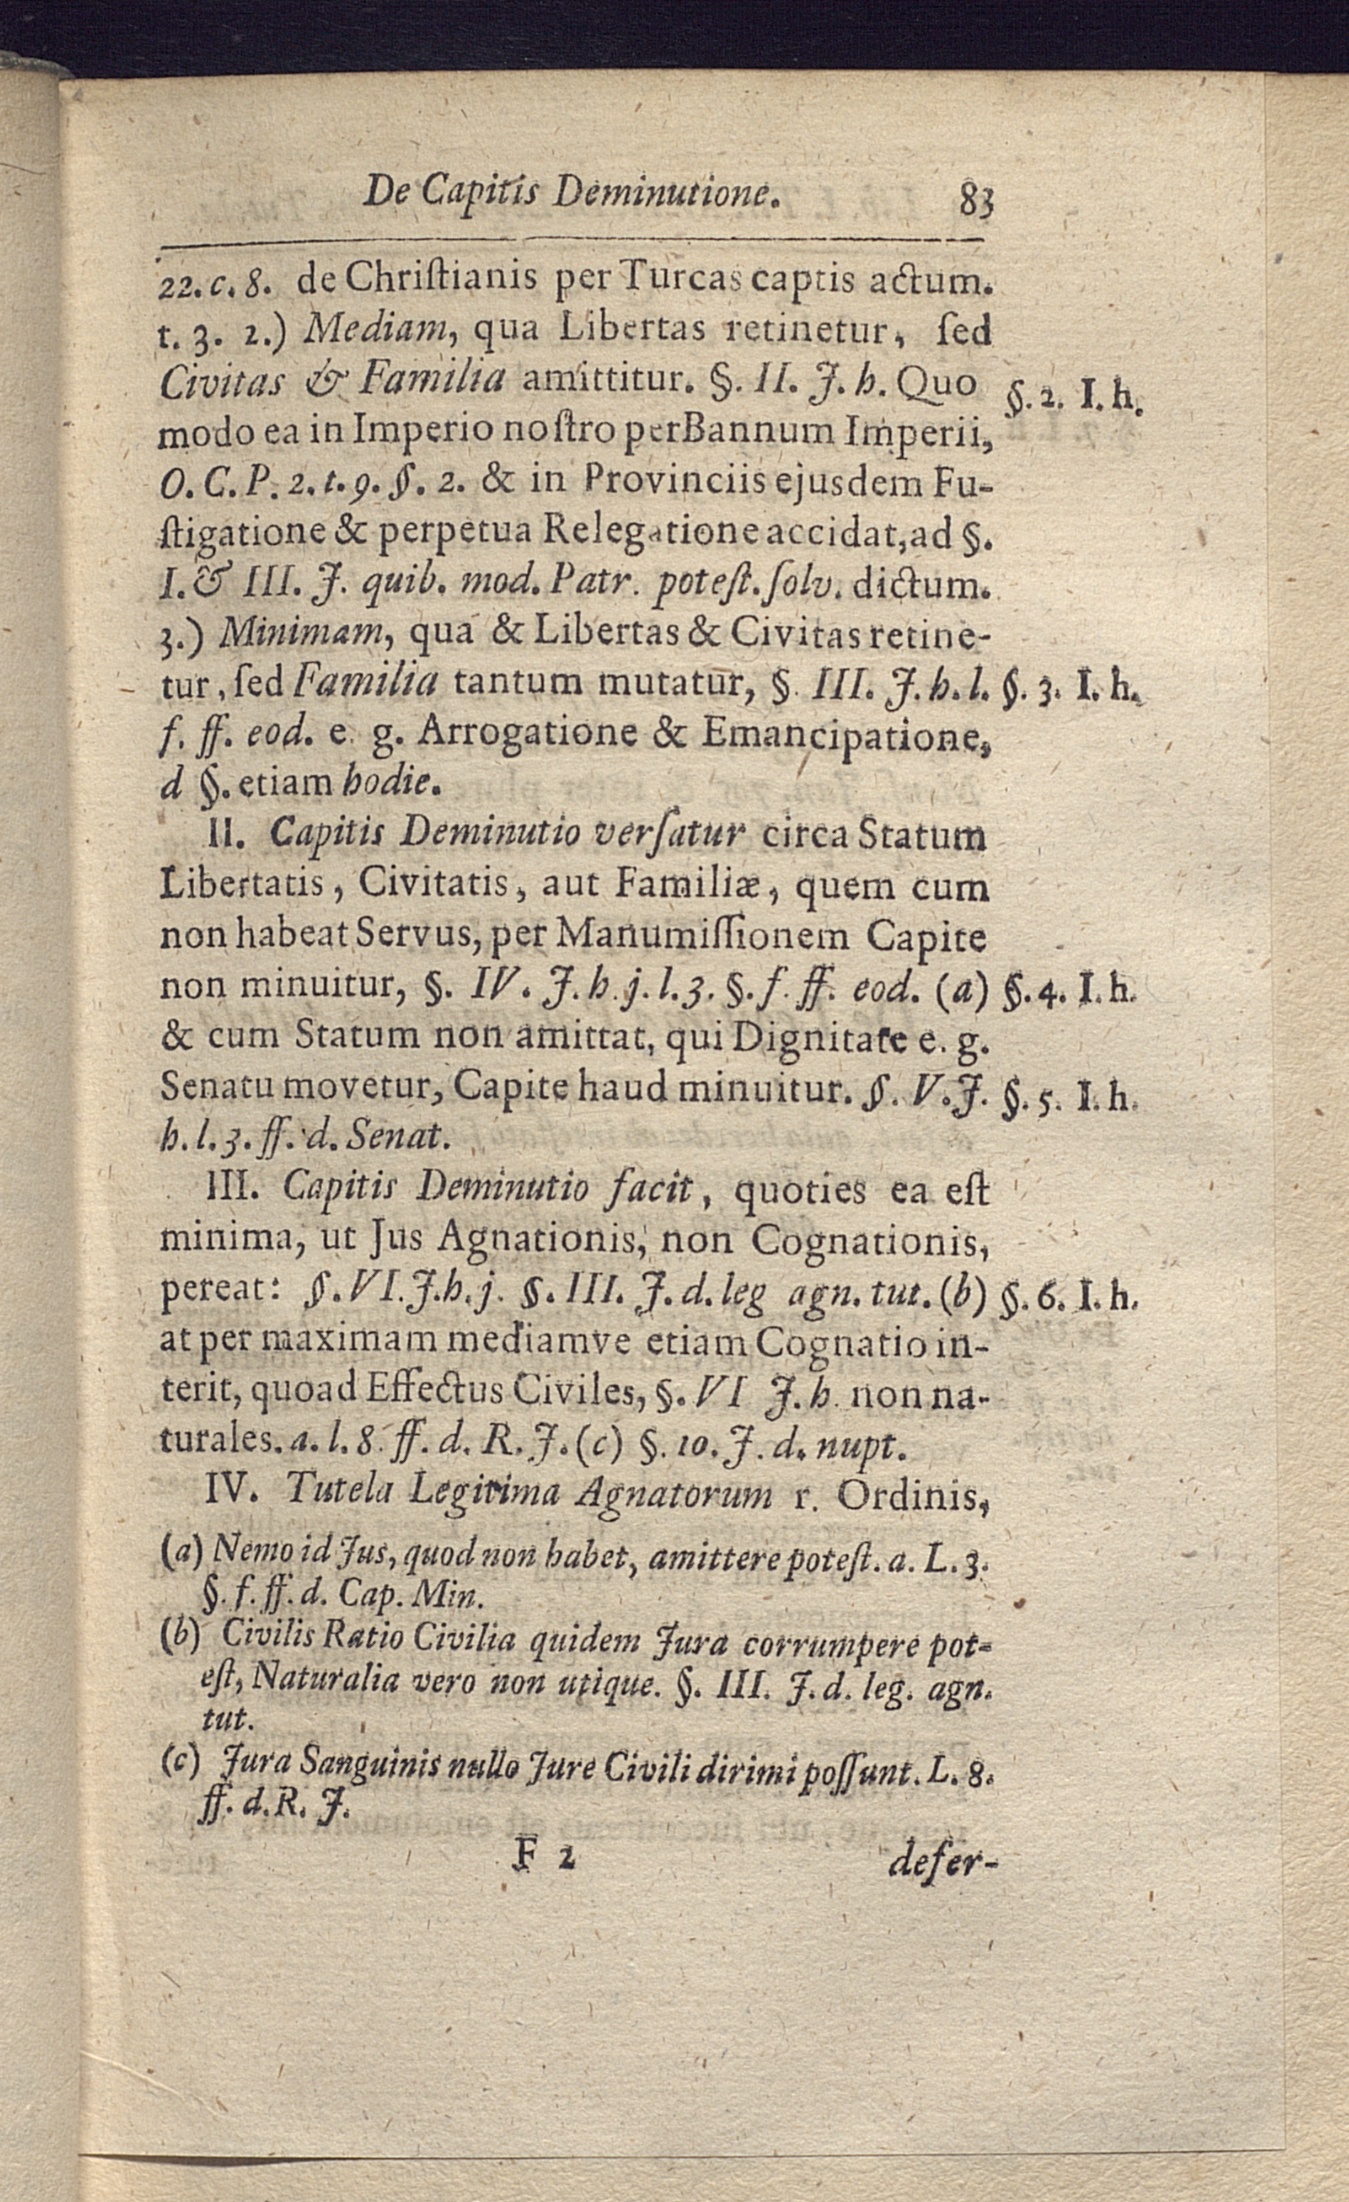 De Capitis Deminutione. 83
22. c. 8. de Chriſtianis per Turcas captis actum.
t. 3. 2.) Mediam, qua Libertas retinetur, ſed
Civitas & Familia amittitur. §. II. J. h. Quo §. 2. I. h.
modo ea in Imperio noſtro per Bannum Imperii,
O. C. P. 2. t. 9. §. 2. & in Provinciis ejusdem Fu-
ſtigatione & perpetua Relegatione accidat, ad §.
I. & III. J. quib. mod. Patr. poteſt. ſolv. dictum.
3.) Minimam, qua & Libertas & Civitas retine-
tur, ſed Familia tantum mutatur, §. III. J. h. l. §. 3. I. h.
f. ff. eod. e. g. Arrogatione & Emancipatione,
d §. etiam hodie.
II. Capitis Deminutio verſatur circa Statum
Libertatis, Civitatis, aut Familiæ, quem cum
non habeat Servus, per Manumiſſionem Capite
non minuitur, §. IV. J. h. j. l. 3. §. f. ff. eod. (a) §. 4. I. h.
& cum Statum non amittat, qui Dignitate e. g.
Senatu movetur, Capite haud minuitur. §. V. J. §. 5. I. h.
h. l. 3. ff. d. Senat.
III. Capitis Deminutio facit, quoties ea eſt
minima, ut Jus Agnationis, non Cognationis,
pereat: §. VI. J. h. j. §. III. J. d. leg agn. tut. (b) §. 6. I. h.
at per maximam mediamve etiam Cognatio in-
terit, quoad Effectus Civiles, §. VI J. h. non na-
turales. a. l. 8. ff. d. R. J. (c) §. 10. J. d. nupt.
IV. Tutela Legitima Agnatorum r. Ordinis,
(a) Nemo id Jus, quod non habet, amittere poteſt. a. L. 3.
§. f. ff. d. Cap. Min.
(b) Civilis Ratio Civilia quidem Jura corrumpere pot-
eſt, Naturalia vero non utique. §. III. J. d. leg. agn.
tut.
(c) Jura Sanguinis nullo Jure Civili dirimi poſſunt. L. 8.
ff. d. R. J.
F 2 defer-